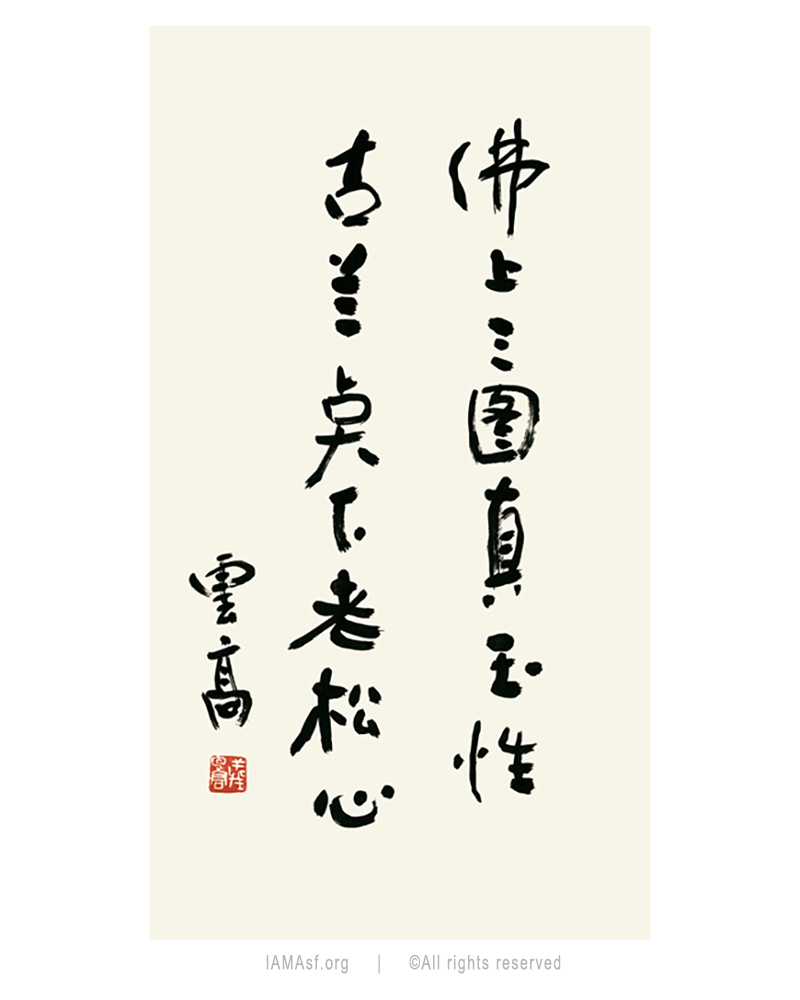 佛上三图真玉性
吉兰奌下老松心
雲高
IAMAsf.org | ©All rights reserved